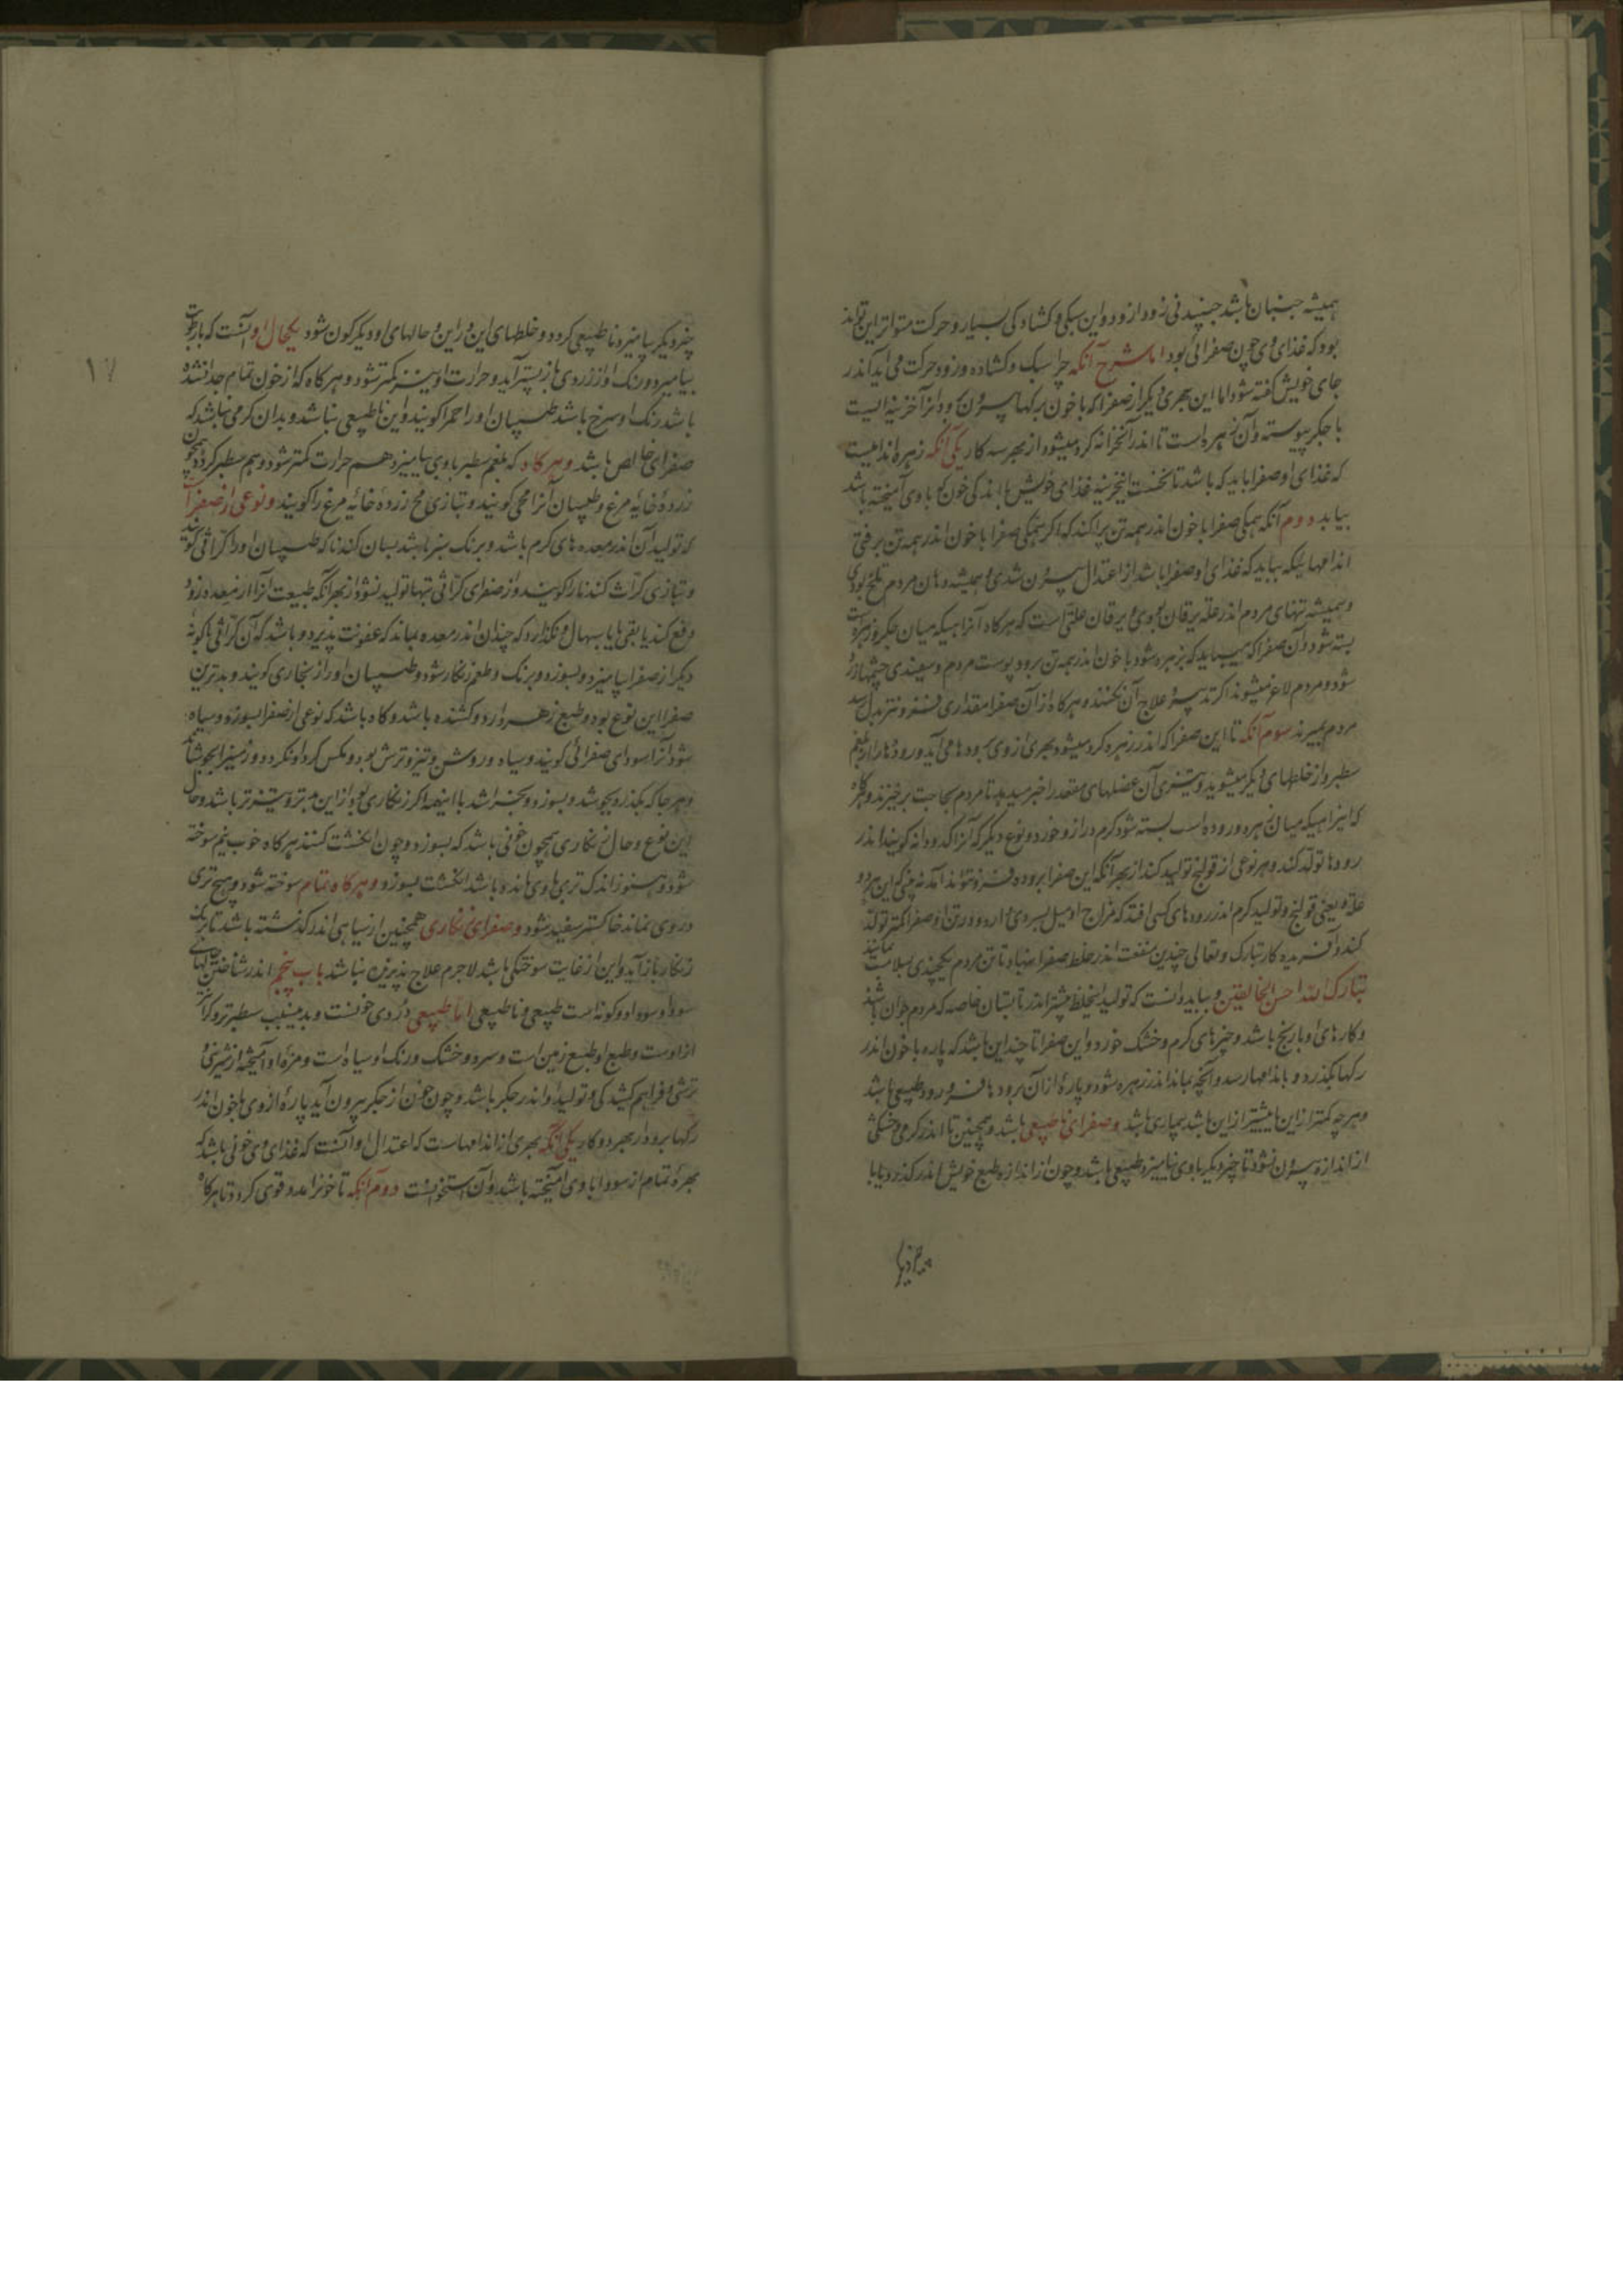 همیشه جنبان باشد جنبیدنی زود از زود و این سبکی و کشادکی بسیار و حرکت متواتر این تواند
بود که غذای وی چون صفرائی بود اما شرح آنکه چرا سبک و کشاده و زود حرکت می اید اندر
جای خویش کفته شود اما این بهری دیکر از صفرا که با خون برکها بیرون رود انرا خزینه ایست
با جکر پیوسته و آن زهره است تا اندر آنخزانه کرد میشود از بهر سه کار یکی آنکه زهره اندامیست
که غذای او صفرا باید که باشد تا نخست اینخزینه غذای خویش با اندکی خون که با وی آمیخته باشد
بیابد دوم آنکه همکی صفرا با خون اندر همه تن پراکند که اکر همکی صفرا با خون اندر همه تن برفتی
اندامهائیکه بباید که غذای او صفرا باشد از اعتدال بیرون شدی و همیشه دهان مردم تلخ بودی
و همیشه تنهای مردم اندر علة یرقان بودی و یرقان علتی است که هرکاه آنراهیکه میان جکر و زهره است
بسته شود و آن صفرا که میباید که بزهره شود با خون اندر همه تن برود و پوست مردم و سپیدی چشمها زرد
شود و مردم لاغر میشوند اکر تدبیر و علاج آن نکنند و هرکاه از آن صفرا مقداری فزونتر بدل رسد
مردم بمیرند سوم آنکه تا این صفرا که اندر زهره کرد میشود بهری از وی برودها می آید و رودها را از بلغم
سطبر و از خلطهای دیکر میشوید و بتیزی آن عضلهای مقعد را خبر میدهد تا مردم بحاجت برخیزند و هرکاه
که اینراهیکه میان زهره و روده است بسته شود کرم دراز و خورد و نوع دیکر که آنرا کدودانه کویند اندر
رودها تولد کند و هر نوعی از قولنج تولید کند از بهر آنکه این صفرا بروده فرو نتواند آمد نه بینی که این هر دو
علة یعنی قولنج و تولید کرم اندر رودهای کسی افتد که مزاج او میل بسردی دارد و در تن او صفرا کمتر تولد
کند و آفریده کار تبارک و تعالی چندین منفعت اندر خلط صفرا بنهاد تا تن مردم یکچندی بسلامت بماند
تبارک الله احسن الخالقین و بباید دانست که تولید اینخلط بیشتر اندر تابستان خاصه که مردم جوان باشند
و کارهای او با رنج باشد و چیزهای کرم و خشک خورد و این صفرا تا چند این باشد که پاره با خون اندر
رکها بکذرد و باندامها رسد و آنچه بماند اندر زهره شود و پارۀ از آن برودها فرو رود طبیعی باشد
و هر چه کمتر از این یا بیشتر از این باشد بیماری باشد و صفرای ناطبیعی باشد و همچنین تا اندر کرمی و خشکی
از اندازه بیرون نشود تا چیز دیکر با وی نیامیزد طبیعی باشد و چون از اندازه طبع خویش اندر کذرد یا با
چیز دیکر
چیز دیکر بیامیزد ناطبیعی کردد و خلطهای این و راین و حالهای او دیکرکون شود یکحال او آنست که با رطوبت
بیامیزد و رنک او از زردی باز بستر آید و حرارت او نیز کمتر شود و هرکاه که از خون تمام جدا نشده
باشد رنک او سرخ باشد طبیبان او را حمرا کویند و این ناطبیعی نباشد و بدان کرمی نباشد که
صفرای خالص باشد و هرکاه که بلغم سطبر با وی بیامیزد هم حرارت کمتر شود و هم سطبر کردد همچون
زردۀ خایۀ مرغ و طبیبان آنرا محی کویند و بتازی مح زردۀ خایۀ مرغ را کویند و نوعی از صفرا آنست
که تولید آن اندر معده های کرم باشد و برنک سبز باشد بسان کندنا که طبیبان او را کراثی کویند
و بتازی کراث کندنا را کویند و از صفرای کراثی تبها تولید نشود از بهر آنکه طبیعت آنرا از معده زود
دفع کند یا بقی یا باسهال و نکذارد که چندان اندر معده بماند که عفونت پذیرد و باشد که آن کراثی با کونۀ
دیکر از صفرا بیامیزد و بسوزد و برنک و طعم زنکار شود و طبیبان او را زنجاری کویند و بدترین
صفرا این نوع بود و طبع زهر دارد و کشنده باشد و کاه باشد که نوعی از صفرا بسوزد و سیاه
شود آنرا سودای صفرائی کویند و سیاه و روشن و تیز و ترش بود و مکس کرد او نکردد و زمین را بجوشاند
و هر جا که بکذرد بجوشد و بسوزد و بخراشد با اینهمه اکر زنکاری بود از این بتر و تیزتر باشد و حال
این نوع و حال زنکاری همچون خونی باشد که بسوزد و چون انکشت کنند هرکاه خوب نیم سوخته
شود و هنوز اندک تری با وی مانده باشد انکشت بسوزد و هرکاه تمام سوخته شود و هیچ تری
در وی نماند خاکستر سفید شود و صفرای زنکاری همچنین از سیاهی اندر کذشته باشد تا برنک
زنکار باز آید و این از غایت سوختکی باشد لاجرم علاج پذیرنده نباشد باب پنجم اندر شناختن حالهای
سودا و سودا دو کونه است طبیعی و ناطبیعی اما طبیعی دردی خونست و بدینسبب سطبرتر و کرانتر
از اوست و طبع او طبع زمین است و سرد و خشک و رنک او سیاه است و مزۀ او آمیخته از شیرینی و
ترشی و فراهم کشیدکی و تولید او اندر جکر باشد و چون خون از جکر بیرون آید پارۀ از وی با خون اندر
رکها برود از بهر دو کار یکی آنکه بهری از اندامهاست که اعتدال او آنست که غذای وی خونی باشد که
بهرۀ تمام از سودا با وی آمیخته باشد و آن استخوانست دوم آنکه تا خونرا مدد و قوی کردد تا هرکاه
۱۷